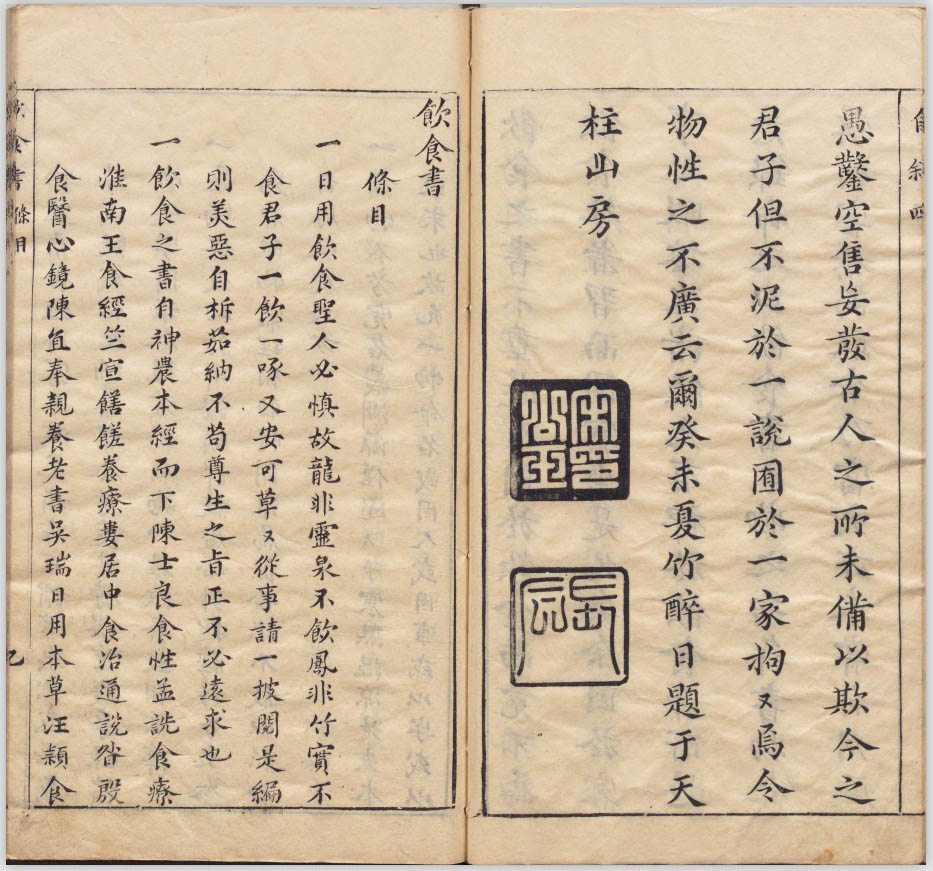 愚鑿空售妄發古人之所未備以欺今之
君子但不泥於一說囿於一家拘又爲令
物性之不廣云爾癸未夏竹醉日題于天
柱山房
飲食書
條目
一日用飲食聖人必慎故龍非靈泉不飲鳳非竹實不
食君子一飲一啄又安可草又從事請一披閱是編
則美惡自柝茹納不苟尊生之旨正不必遠求也
一飲食之書自神農本經而下陳士良食性孟詵食療
淮南王食經竺宣饍饈養療婁居中食治通說昝殷
食醫心鏡陳直奉親養老書吳瑞日用本草汪頴食
飲食書 條目